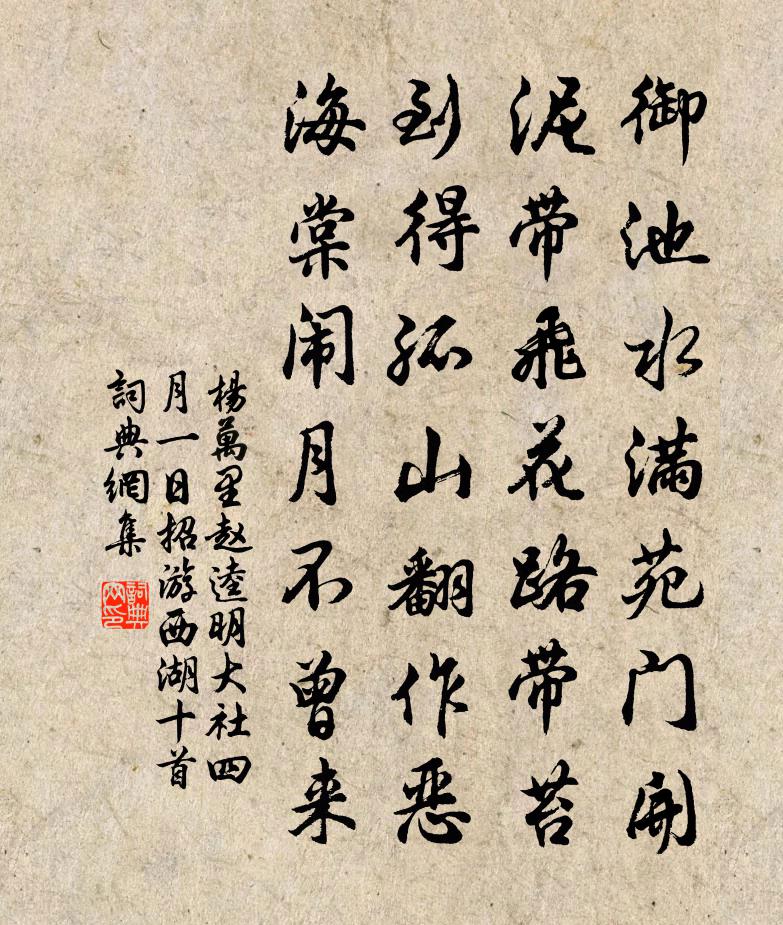 御池水满苑门开
泥带飛花路带苔
到得孤山翻作恶
海棠闹月不曾来
楊萬里赵逵明大社四
月一日招游西湖十首
詞典網集
詞典
网印